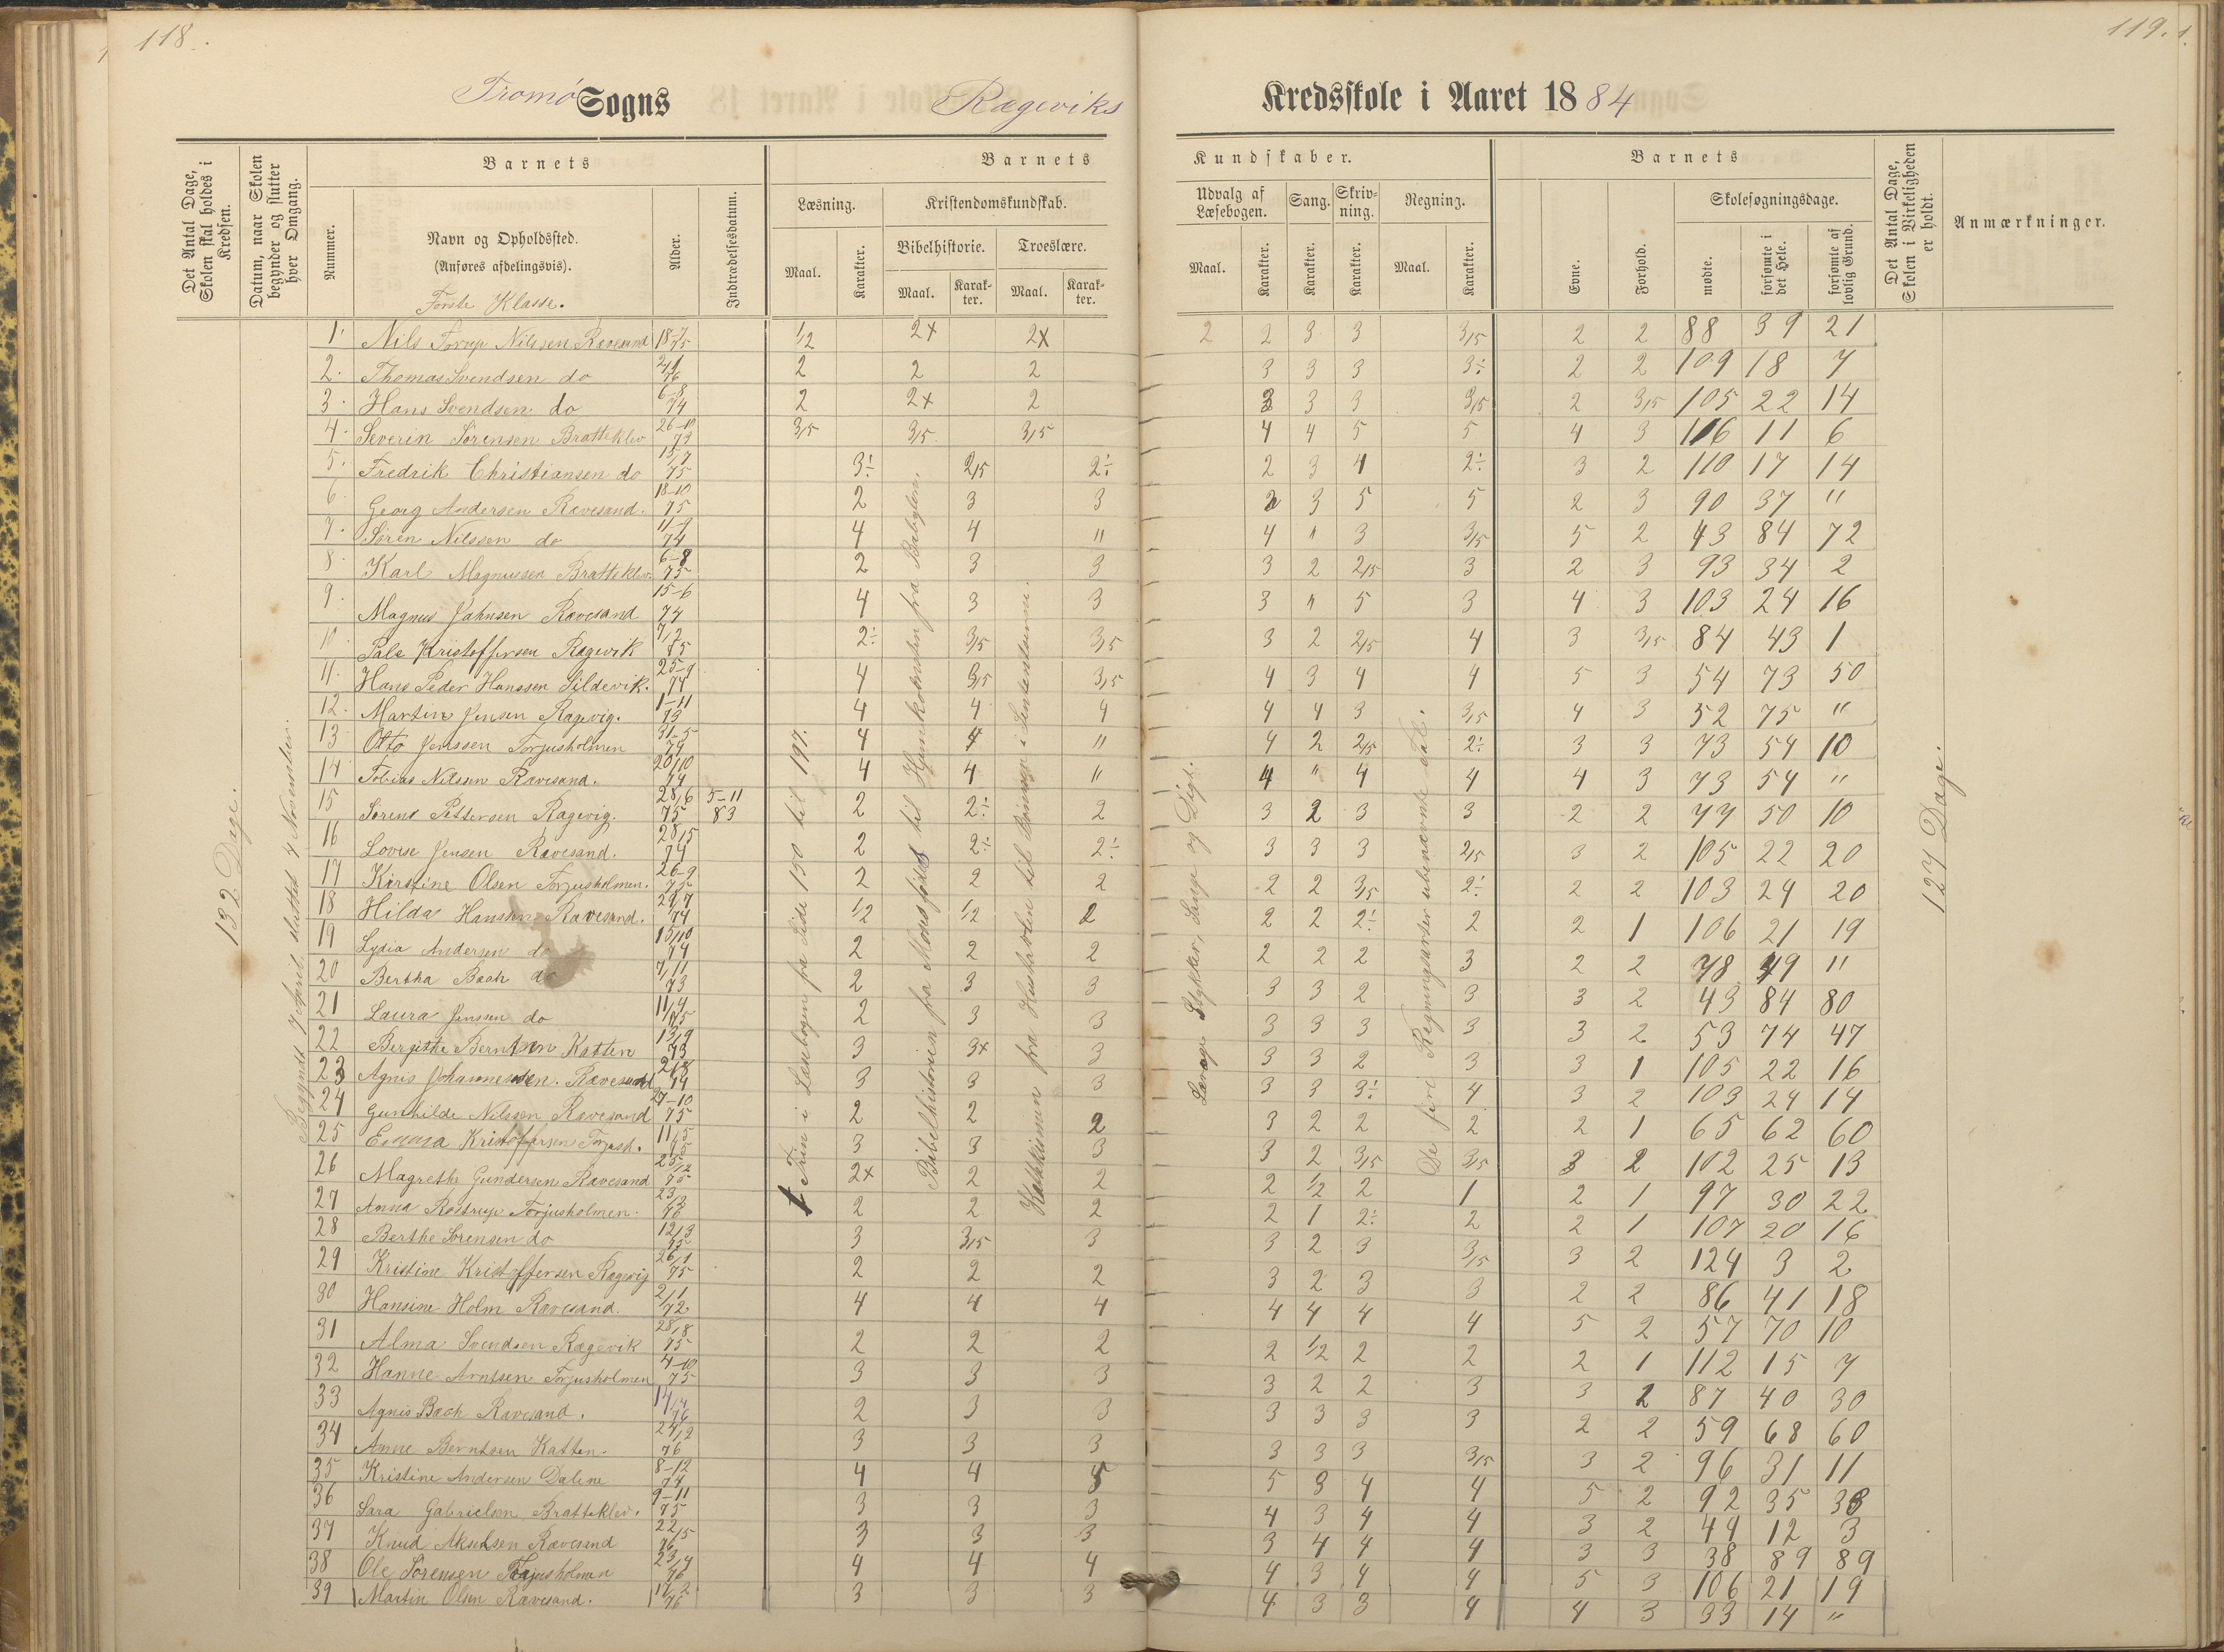 118.
119.
Tromø Sogns Rageviks Kredsskole i Aaret 1884
Det Antal Dage, Skolen skal holdes i Kredsen.
Datum, naar Skolen begynder og slutter hver Omgang.
Barnets
Nummer.
Navn og Opholdssted.
(Anføres afdelingsvis).
Første Klasse.
Alder.
Indtrædelsesdatum.
Barnets Kundskaber.
Læsning.
Maal. Karakter.
Kristendomskundskab.
Bibelhistorie. Troeslære.
Maal. Karakter. Maal. Karakter.
Udvalg af Læsebogen.
Maal. Karakter.
Sang. Karakter.
Skrivning. Karakter.
Regning.
Maal. Karakter.
Barnets
Evne. Forhold.
Skolesøgningsdage.
mødte. forsømte i det Hele. forsømte af lovlig Grund.
Det Antal Dage, Skolen i Virkeligheden er holdt.
Anmærkninger.
132 Dage.
Begyndt 7 April, sluttet 7 November.
Trin i Læsebogen fra Side 150 til 197.
Bibelhistorien fra Moses fødsel til Hjemkomsten fra Babylon.
Læsage Stykker, Sange og Digt.
De fire Regningsarter ubenævnte Tal.
127 Dage.
1. Nils Torup Nilssen Ravesand 1/2 2+ 2x 2 2 3 3 3,5 2 2 88 39 21
2. Thomas Svendsen do 2 2 2 3 3 3 3÷ 2 2 109 18 7
3. Hans Svendsen do 6-8 74 2 2+ 2 3 3 3 3,5 2 3,5 105 22 14
4. Severin Sørensen Bratteklev 26-10 73 3,5 3,5 3,5 4 4 5 5 4 3 116 11 6
5. Fredrik Christiansen do 15/7 75 3÷ 2,5 2÷ 2 3 4 2÷ 3 2 110 17 14
6 Georg Andersen Ravesand. 18-10 75 2 3 3 2 3 5 5 2 3 90 37 "
7. Søren Nilssen do 11-9 74 4 4 " 4 " 3 3,5 5 2 43 84 72
8. Karl Magnussen Bratteklev. 6-8 75 2 3 3 3 2 2,5 3 2 3 93 34 2
9. Magnus Jahnsen Ravesand 15-6 74 4 3 3 3 " 5 3 4 3 103 24 16
10. Pale Kristoffersen Ragevik 7/2 75 2÷ 3,5 3,5 3 2 2,5 4 3 3,5 84 43 1
11. Hans Peder Hanssen Sildevik. 25-9 74 4 3,5 3,5 4 3 4 4 5 3 54 73 50
12. Martin Jensen Ragevig. 1-11 73 4 4 4 4 4 3 3,5 4 3 52 75 "
13 Otto Jenssen Torjusholmen 31-5 74 4 4 " 4 2 2,5 2÷ 3 3 73 54 10
14 Tobias Nilssen Ravesand. 20/10 74 4 4 " 4 " 4 4 4 3 73 54 "
15 Sørens Pettersen Ragevig. 28/6 75 5-11 83 2 2÷ 2 3 2 3 3 2 2 77 50 10
16 Lovise Jensen Ravesand. 28/5 74 2 2÷ 2÷ 3 3 3 2,5 3 2 105 22 20
17 Kirstine Olsen Torjusholmen. 26-9 75 2 2 2 2 2 3,5 2÷ 2 2 103 24 20
18 Hilda Hanssen Ravesand. 29/7 74 1/2 1/2 2 2 2 2÷ 2 2 1 106 21 19
19 Lydia Andersen do 15/10 74 2 2 2 2 2 2 3 2 2 78 49 "
20 Bertha Bach do 7/11 73 2 3 3 3 3 2 3 3 2 43 84 80
21 Laura Jenssen do 11/4 75 2 3 3 3 3 3 3 3 2 53 74 47
22 Bergithe Berntsen Katten 13/9 73 3 3x 3 3 3 2 3 3 1 105 22 16
23 Agnis Johannessen. Ravesand 74 3 3 3 3 3 3÷ 4 3 2 103 24 14
24 Gunhilde Nilssen Ravesand 27-10 75 2 2 2 3 2 2 2 2 1 65 62 60
25 Emma Kristoffersen Torjush. 11/5 75 3 3 3 3 2 3,5 3,5 3 2 102 25 13
26 Magrethe Gundersen Ravesand 25/12 75 2x 2 2 2 1/2 2 1 2 1 97 30 22
27 Anna Rostrup Torjusholmen. 2 2 2 2 1 2÷ 2 2 1 107 20 16
28 Berthe Sørensen do 12/3 75 3 3,5 3 3 2 3 3,5 3 2 124 3 2
29 Kristine Kristoffersen Ragevig 26/1 75 2 2 2 3 2 3 3 2 2 86 41 18
30 Hansine Holm Ravesand. 2/1 72 4 4 4 4 4 4 4 5 2 57 70 10
31 Alma Svendsen Ragevik 28/8 75 2 2 2 2 1/2 2 2 2 1 112 15 7
32 Hanne Arntsen Torjusholmen 4-10 75 3 3 3 3 2 2 3 3 2 87 40 30
33 Agnis Bach Ravesand. 76 2 3 3 3 3 3 3 2 2 59 68 60
34 Anne Berntsen Katten. 24/12 76 3 3 3 3 3 3 3,5 3 2 96 31 11
35 Kristine Andersen Dalene 8-12 74 4 4 5 5 3 4 4 5 2 92 35 33
36 Sara Gabrielsen Bratteklev. 9-11 75 3 3 3 4 3 4 4 3 2 44 12 3
37 Knud Akselsen Ravesand 22/5 76 3 3 3 3 4 4 4 3 3 38 89 89
38 Ole Sørensen Torjusholmen 23/4 76 4 4 4 4 3 4 4 5 3 106 21 19
39 Martin Olsen Ravesand. 3 3 3 4 3 3 4 4 3 33 14 "